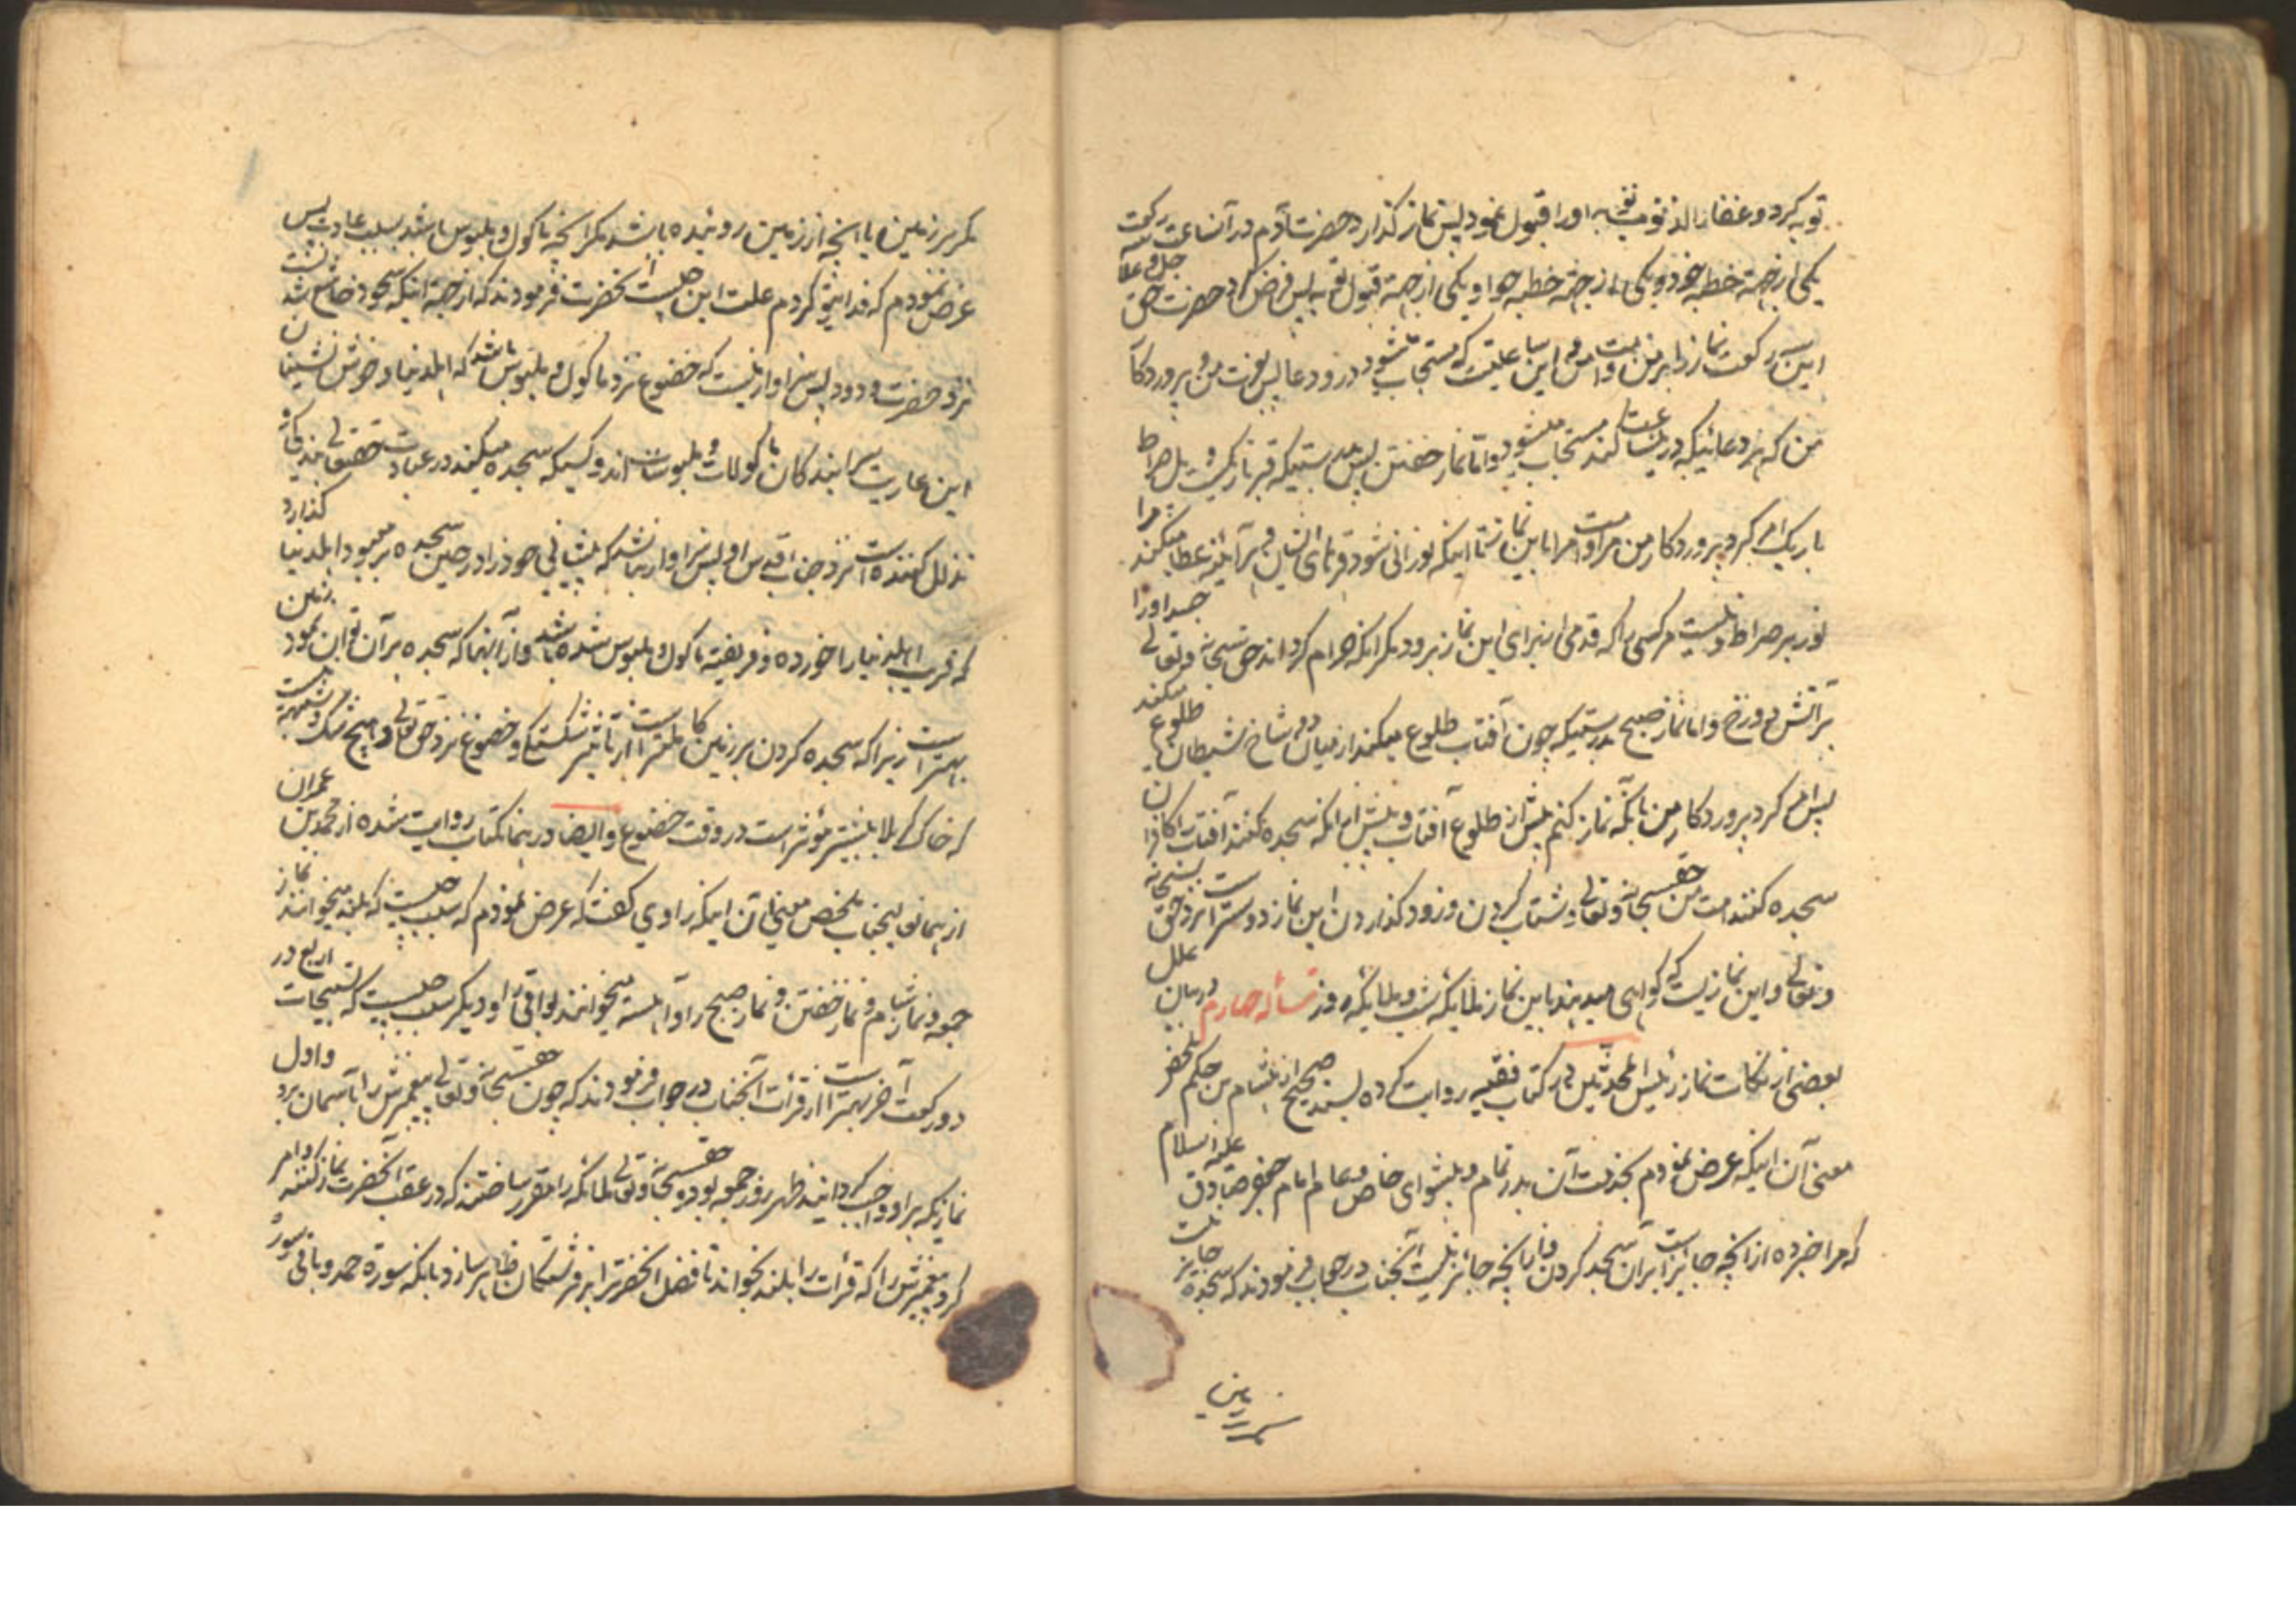 توبه کرد و غفار الذنوب توبه او را قبول نمود پس نماز گذارد حضرت آدم در آنساعت سه رکعت
یکی از جهة خطیه خود و یکی از جهة خطیه حوا و یکی از جهة قبول توبه پس فرض کرد حضرت حق جل و علا
این سه رکعت نماز را بر من و امت من و این ساعتیست که مستجاب میشود درو دعا پس وعده من پروردگار
من که هر دعائیکه درینساعت کنند مستجاب میشود و اما نماز خفتن پس بدرستیکه قبر تاریکست و پل صراط
باریک امر کرد پروردگار من مرا و امت مرا باین نماز تا اینکه نورانی شود قبرهای ایشان و هر آینه عطا میکند مرا
نور بر صراط و نیست مر کسی را که قدمی از برای این نماز برود مگر انکه حرام گرداند حق سبحانه و تعالی جسد او را
بر آتش دوزخ و اما نماز صبح بدرستیکه چون آفتاب طلوع میکند از میان دو شاخ شیطان طلوع میکند
پس امر کرد پروردگار من بآنکه نماز کنم پیش از طلوع آفتاب و پیش از انکه سجده کنند آفتاب را کافران
سجده کنند امت من حقسبحانه و تعالی و شتاب کردن و زود گذاردن این نماز دوستر است نزد حق سبحانه
و تعالی و این نمازیست که گواهی میدهند باین نماز ملایکه شب و ملایکه روز مسأله چهارم در بیان علل
بعضی از نکات نماز رئیس المحدثین در کتاب فقیه روایت کرده بسند صحیح از هشام بن حکم ملخص
معنی آن اینکه عرض نمودم بخدمت آن بدر تمام و پیشوای خاص و عام امام جعفر صادق علیه السلام
که مرا خبر ده از آنچه جایز است بران سجده کردن و از آنچه جائز نیست آنجناب در جواب فرمودند که سجده جایز نیست
مگر بر زمین یا آنچه از زمین روئیده باشد مگر آنچه مأکول و ملبوس باشد بسبب عادت پس
عرض نمودم که فدایتو گردم علت این چیست آنحضرت فرمودند که از جهة اینکه سجود خاضع شدنست
نزد حضرت ودود پس سزاوار نیست که خضوع نزد مأکول و ملبوس باشد که اهلدنیا و خوش نشینان
این عاریت سرا بندگان مأکولات و ملبوسات اند و کسیکه سجده میکند در عبادت حقتعالی بندگی
تذلل کننده است نزد جناب اقدس او پس سزاوار نباشد که پیشانی خود را در حین سجده بر معبود اهلدنیا گذارد
که فریب اهلدنیا را خورده و فریفته مأکول و ملبوس شده باشد و از آنهما که سجده بر آن توان نمود زمین
بهتر است زیرا که سجده کردن بر زمین کاملتر است از تأثیر شکستگی و خضوع نزد حق تعالی و هیچ شک و شبهه نیست
که خاک کربلا بیشتر مؤثر است در وقت خضوع و ایضا در همانکتاب روایت شده از محمد بن عمران
از همانعالیجناب ملخص معنی آن اینکه راوی گفت که عرض نمودم که سبب چیست که بلند میخوانند نماز
جمعه و نماز شام و نماز خفتن و نماز صبح را و آهسته میخوانند بواقی را و دیگر سبب چیست که تسبیحات اربع در
دو رکعت آخر بهتر است از قرأت آنجناب در جواب فرمودند که چون حقسبحانه و تعالی پیغمبرش را بآسمان برد و اول
نمازیکه بر او واجب گردانید ظهر روز جمعه بود و حقسبحانه و تعالی ملائکه را مقرر ساختند که در عقب آنحضرت نماز کنند و امر
کرد پیغمبرش را که قرأت را بلند بخواند تا فضل آنحضرت را بر فرشتگان ظاهر سازد بآنکه سوره حمد و باقی سوره